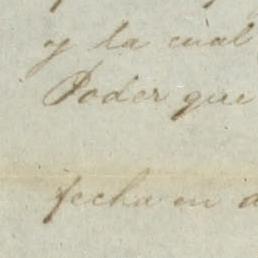 y la cual
Poder que
fecha en